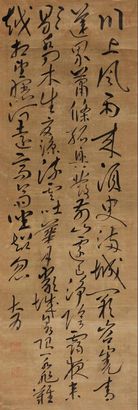 川上風雨来須臾滿城闕岧嶤青
蓮界蕭條孤興發前山遽已淨陰靄夜来
歇喬木生夏涼流雲吐華月嚴城自有限一水非難
越相望曙河遠高齋坐超忽